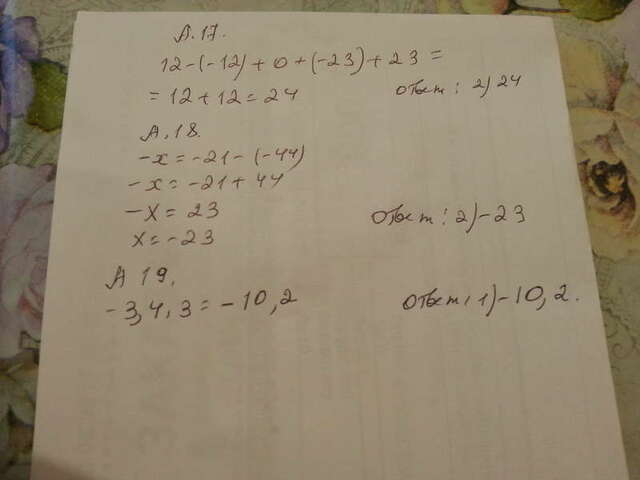 А.17.
12-(-12)+0+(-23)+23=
=12+12=24 ответ: 2) 24
А.18.
-x=-21-(-44)
-x=-21+44
-x=23
x=-23 ответ: 2)-23
А 19.
-3,4·3=-10,2 ответ: 1)-10,2.